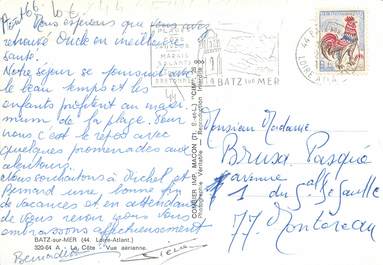 Août 66.
Nous espérons que vous avez
retrouvé Oncle en meilleure
santé.
Notre séjour se poursuit avec
le beau temps et les
enfants profitent au maxi-
mum de la plage. Pour
nous c'est le repos avec
quelques promenades aux
alentours.
Nous souhaitons à Michel et
Bernard une bonne fin
de vacances et en attendant
de vous revoir nous vous
embrassons affectueusement
Bernadette
BATZ-sur-MER (44. Loire-Atlant.)
320-64 A - La Côte - Vue aérienne.
COMBIER IMP. MACON (S.-et-L.) "CIM"
Photographie Véritable - Reproduction Interdite
PLAGE
MARAIS
SALANTS
BATZ sur MER
44
LOIRE ATLANTIQUE
Monsieur Madame
Brusa Pasqué
1 avenue du Gal de Gaulle
77. Montereau